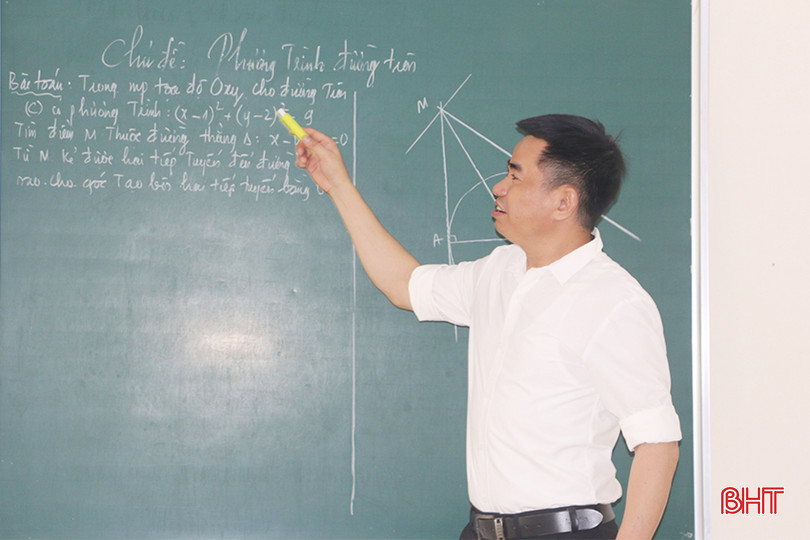 Chủ đề: Phương Trình đường tròn
Bài toán: Trong mp tọa độ Oxy cho đường Tròn
(C) có phương Trình: (x-1)² + (y-2) 9
Tìm điểm M Thuộc đường thẳng Δ: x- =0
Từ M kẻ được hai tiếp Tuyến đến đường
sao cho góc Tạo bởi hai tiếp tuyến bằng
M
A
BHT